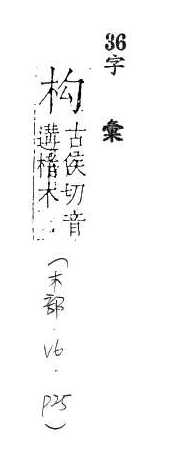 36字 彙
构
古侯切音
遘楷木
(木部.V6.P25)